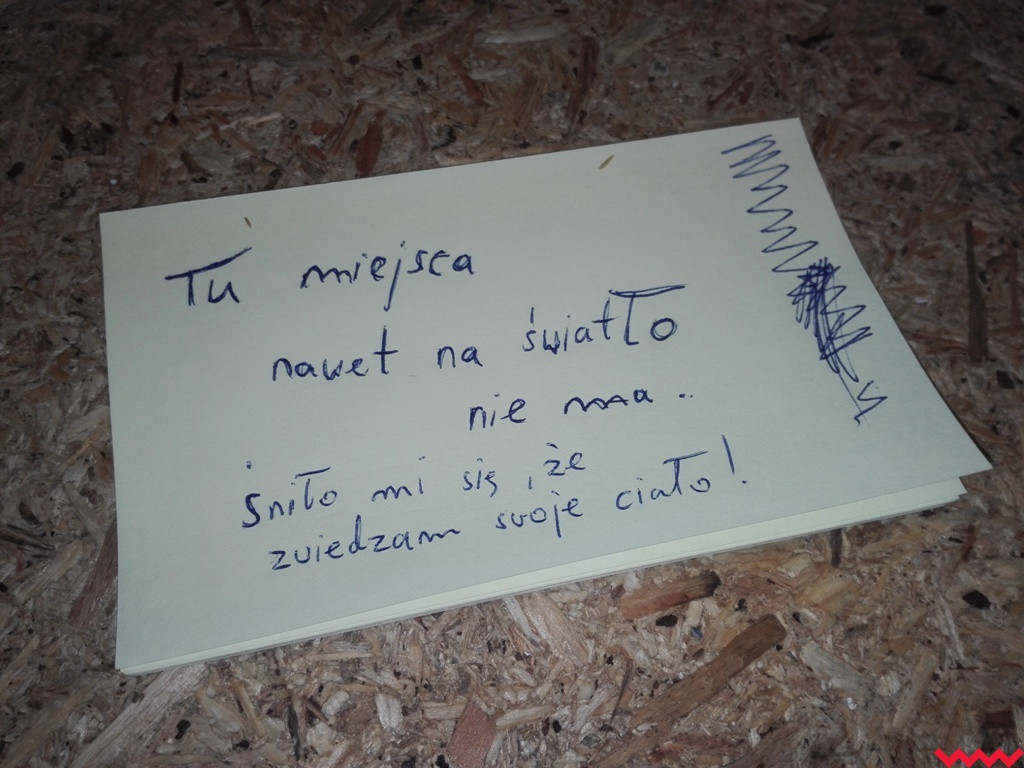 Tu miejsca
nawet na światło
nie ma..
śniło mi się, że
zwiedzam swoje ciało!